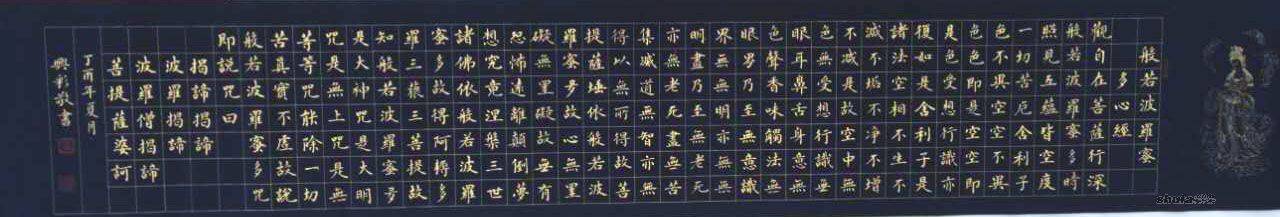 般若波羅蜜
多心經
觀自在菩薩行深
般若波羅蜜多時
照見五蘊皆空度
一切苦厄舍利子
色不異空空不異
色色即是空空即
是色受想行識亦
復如是舍利子是
諸法空相不生不
滅不垢不淨不增
不減是故空中無
色無受想行識無
眼耳鼻舌身意無
色聲香味觸法無
眼界乃至無意識
界無無明亦無無
明盡乃至無老死
亦無老死盡無苦
集滅道無智亦無
得以無所得故菩
提薩埵依般若波
羅蜜多故心無罣
礙無罣礙故無有
恐怖遠離顛倒夢
想究竟涅槃三世
諸佛依般若波羅
蜜多故得阿耨多
羅三藐三菩提故
知般若波羅蜜多
是大神咒是大明
咒是無上咒是無
等等咒能除一切
苦真實不虛故說
般若波羅蜜多咒
即說咒曰
揭諦揭諦
波羅揭諦
波羅僧揭諦
菩提薩婆訶
丁酉年夏月
興彰敬書